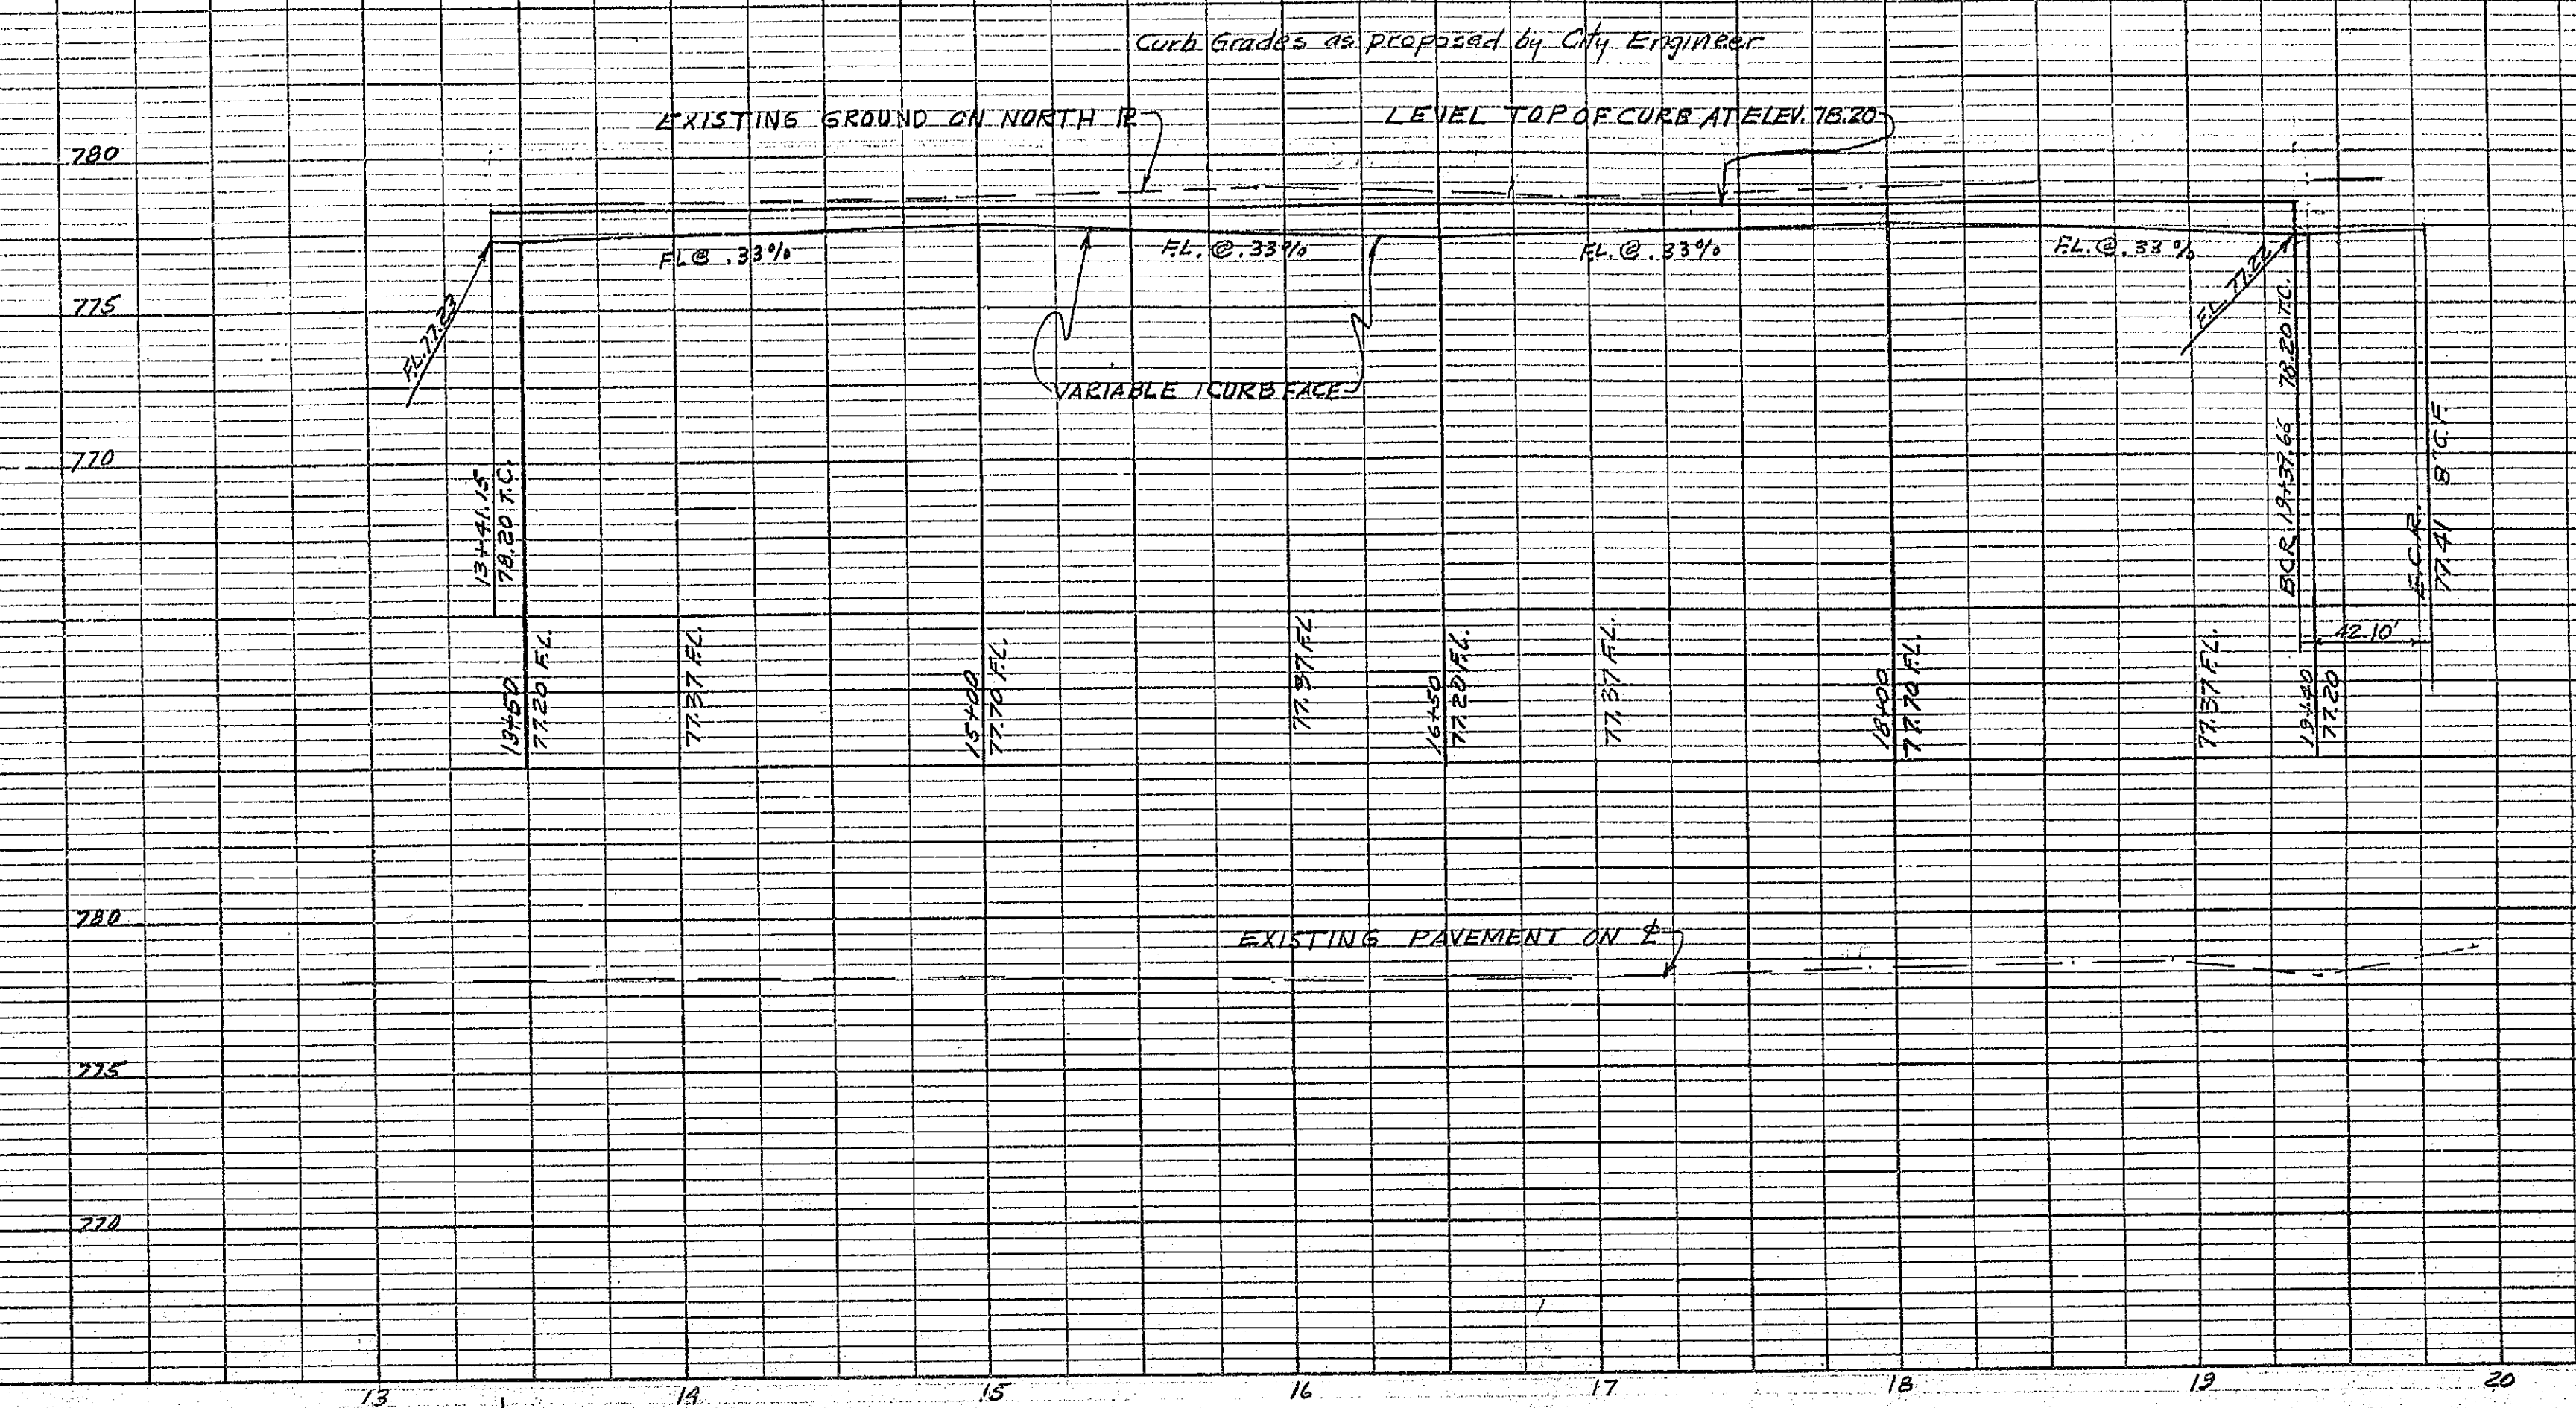 Curb Grades as proposed by City Engineer
EXISTING GROUND ON NORTH ℞
LEVEL TOP OF CURB AT ELEV. 78.20
780
F.L. @ .33%
F.L. @ .33%
F.L. @ .33%
F.L. @ .33%
775
F.L. 77.23
F.L. 77.22
VARIABLE CURB FACE
770
13+41.15
78.20 T.C.
BCR 19+39.66 78.20 T.C.
E.C.R.
77.41 8" C.F.
42.10'
13+50
77.20 F.L.
77.37 F.L.
15+00
77.70 F.L.
77.37 F.L
16+50
77.20 F.L.
77.37 F.L.
18+00
77.70 F.L.
77.37 F.L.
19+40
77.20
780
EXISTING PAVEMENT ON ℄
775
770
13 14 15 16 17 18 19 20